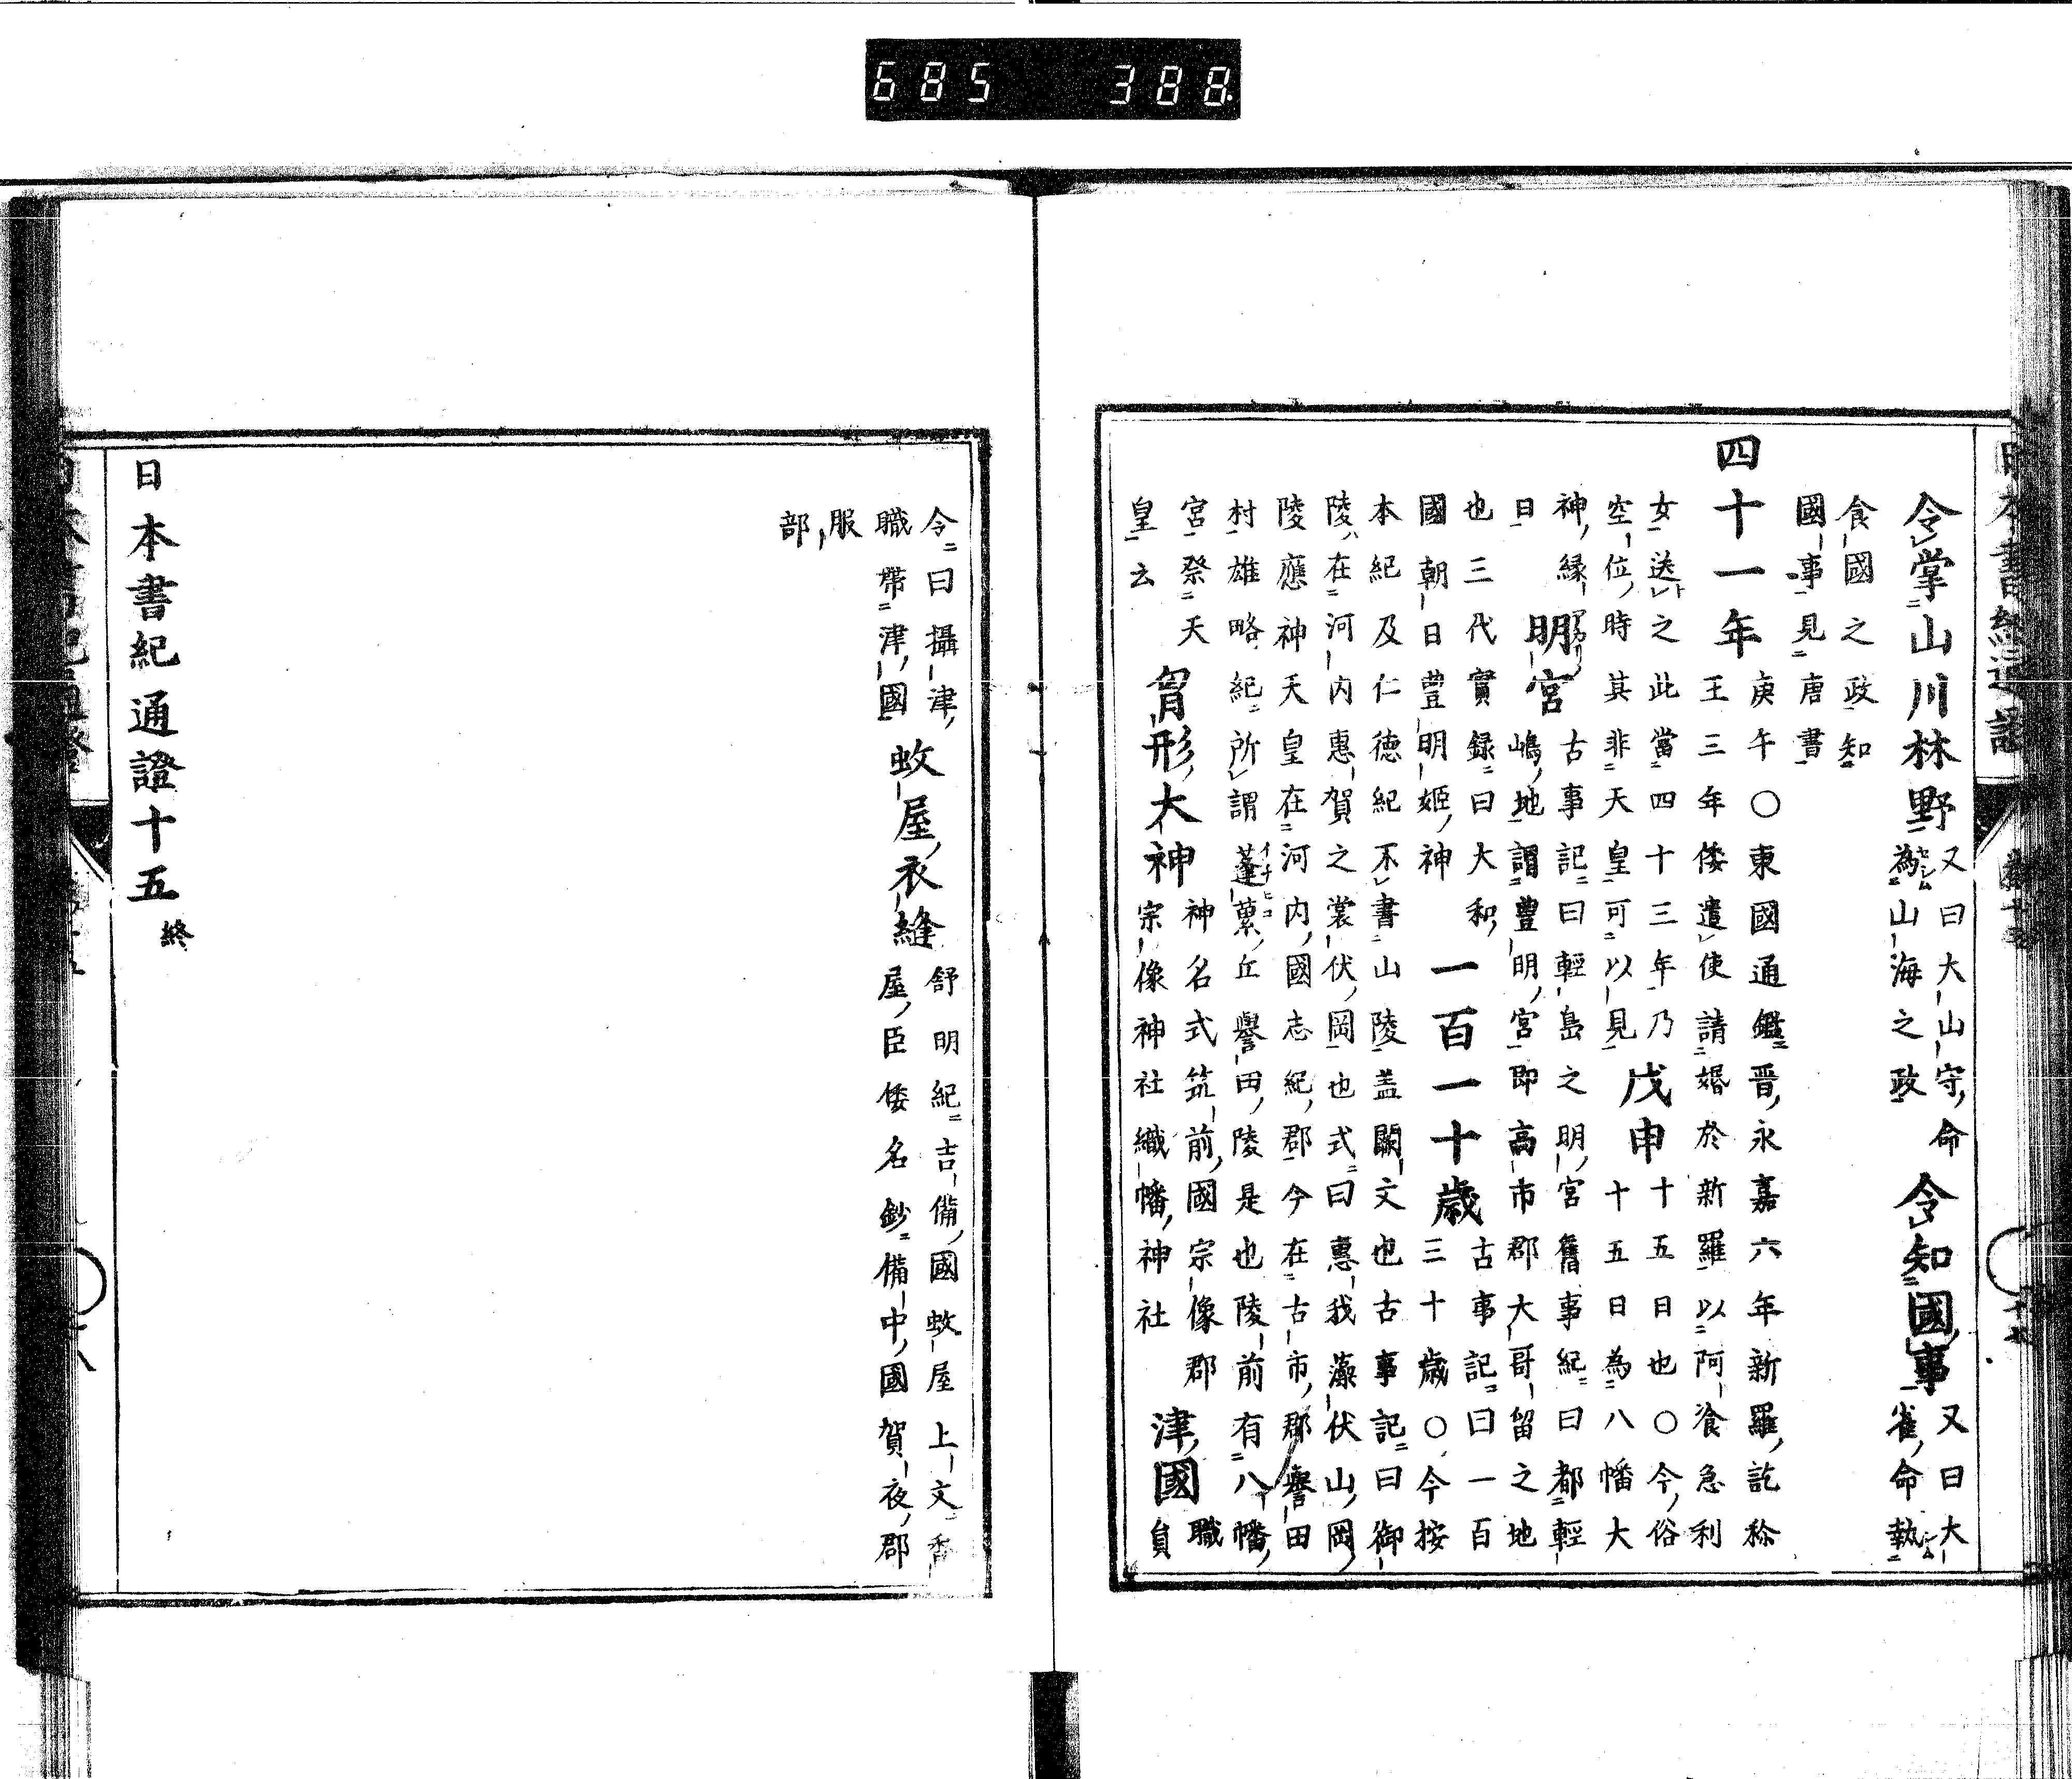 685 388
日本書紀通證
令掌山川林野
又曰大山守命
為山海之政
令知國事
又曰大
雀命執
食國之政知
國事見唐書
四十一年
庚午〇東國通鑑晋永嘉六年新羅訖稌
王三年倭遣使請婚於新羅以阿飡急利
女送之此當四十三年乃
空位時其非天皇可以見
戊申
十五日也〇今俗
十五日為八幡大
神縁
日
明宮
古事記曰輕島之明宮舊事紀曰都輕
嶋地謂豊明宮即高市郡大哥留之地
也三代實録曰大和
國朝日豊明姫神
一百一十歳
古事記曰一百
三十歳〇今按
本紀及仁徳紀不書山陵盖闕文也古事記曰御
陵在河内惠賀之裳伏岡也式曰惠我藻伏山岡
陵應神天皇在河内國志紀郡今在古市郡譽田
村雄略紀所謂蓬蔂丘譽田陵是也陵前有八幡
宮祭天
皇云
胷形大神
神名式筑前國宗像郡
宗像神社織幡神社
津國
職
員
令曰攝津
職帶津國
蚊屋衣縫
舒明紀吉備國蚊屋上文香
屋臣倭名鈔備中國賀夜郡
服
部
日本書紀通證十五 終